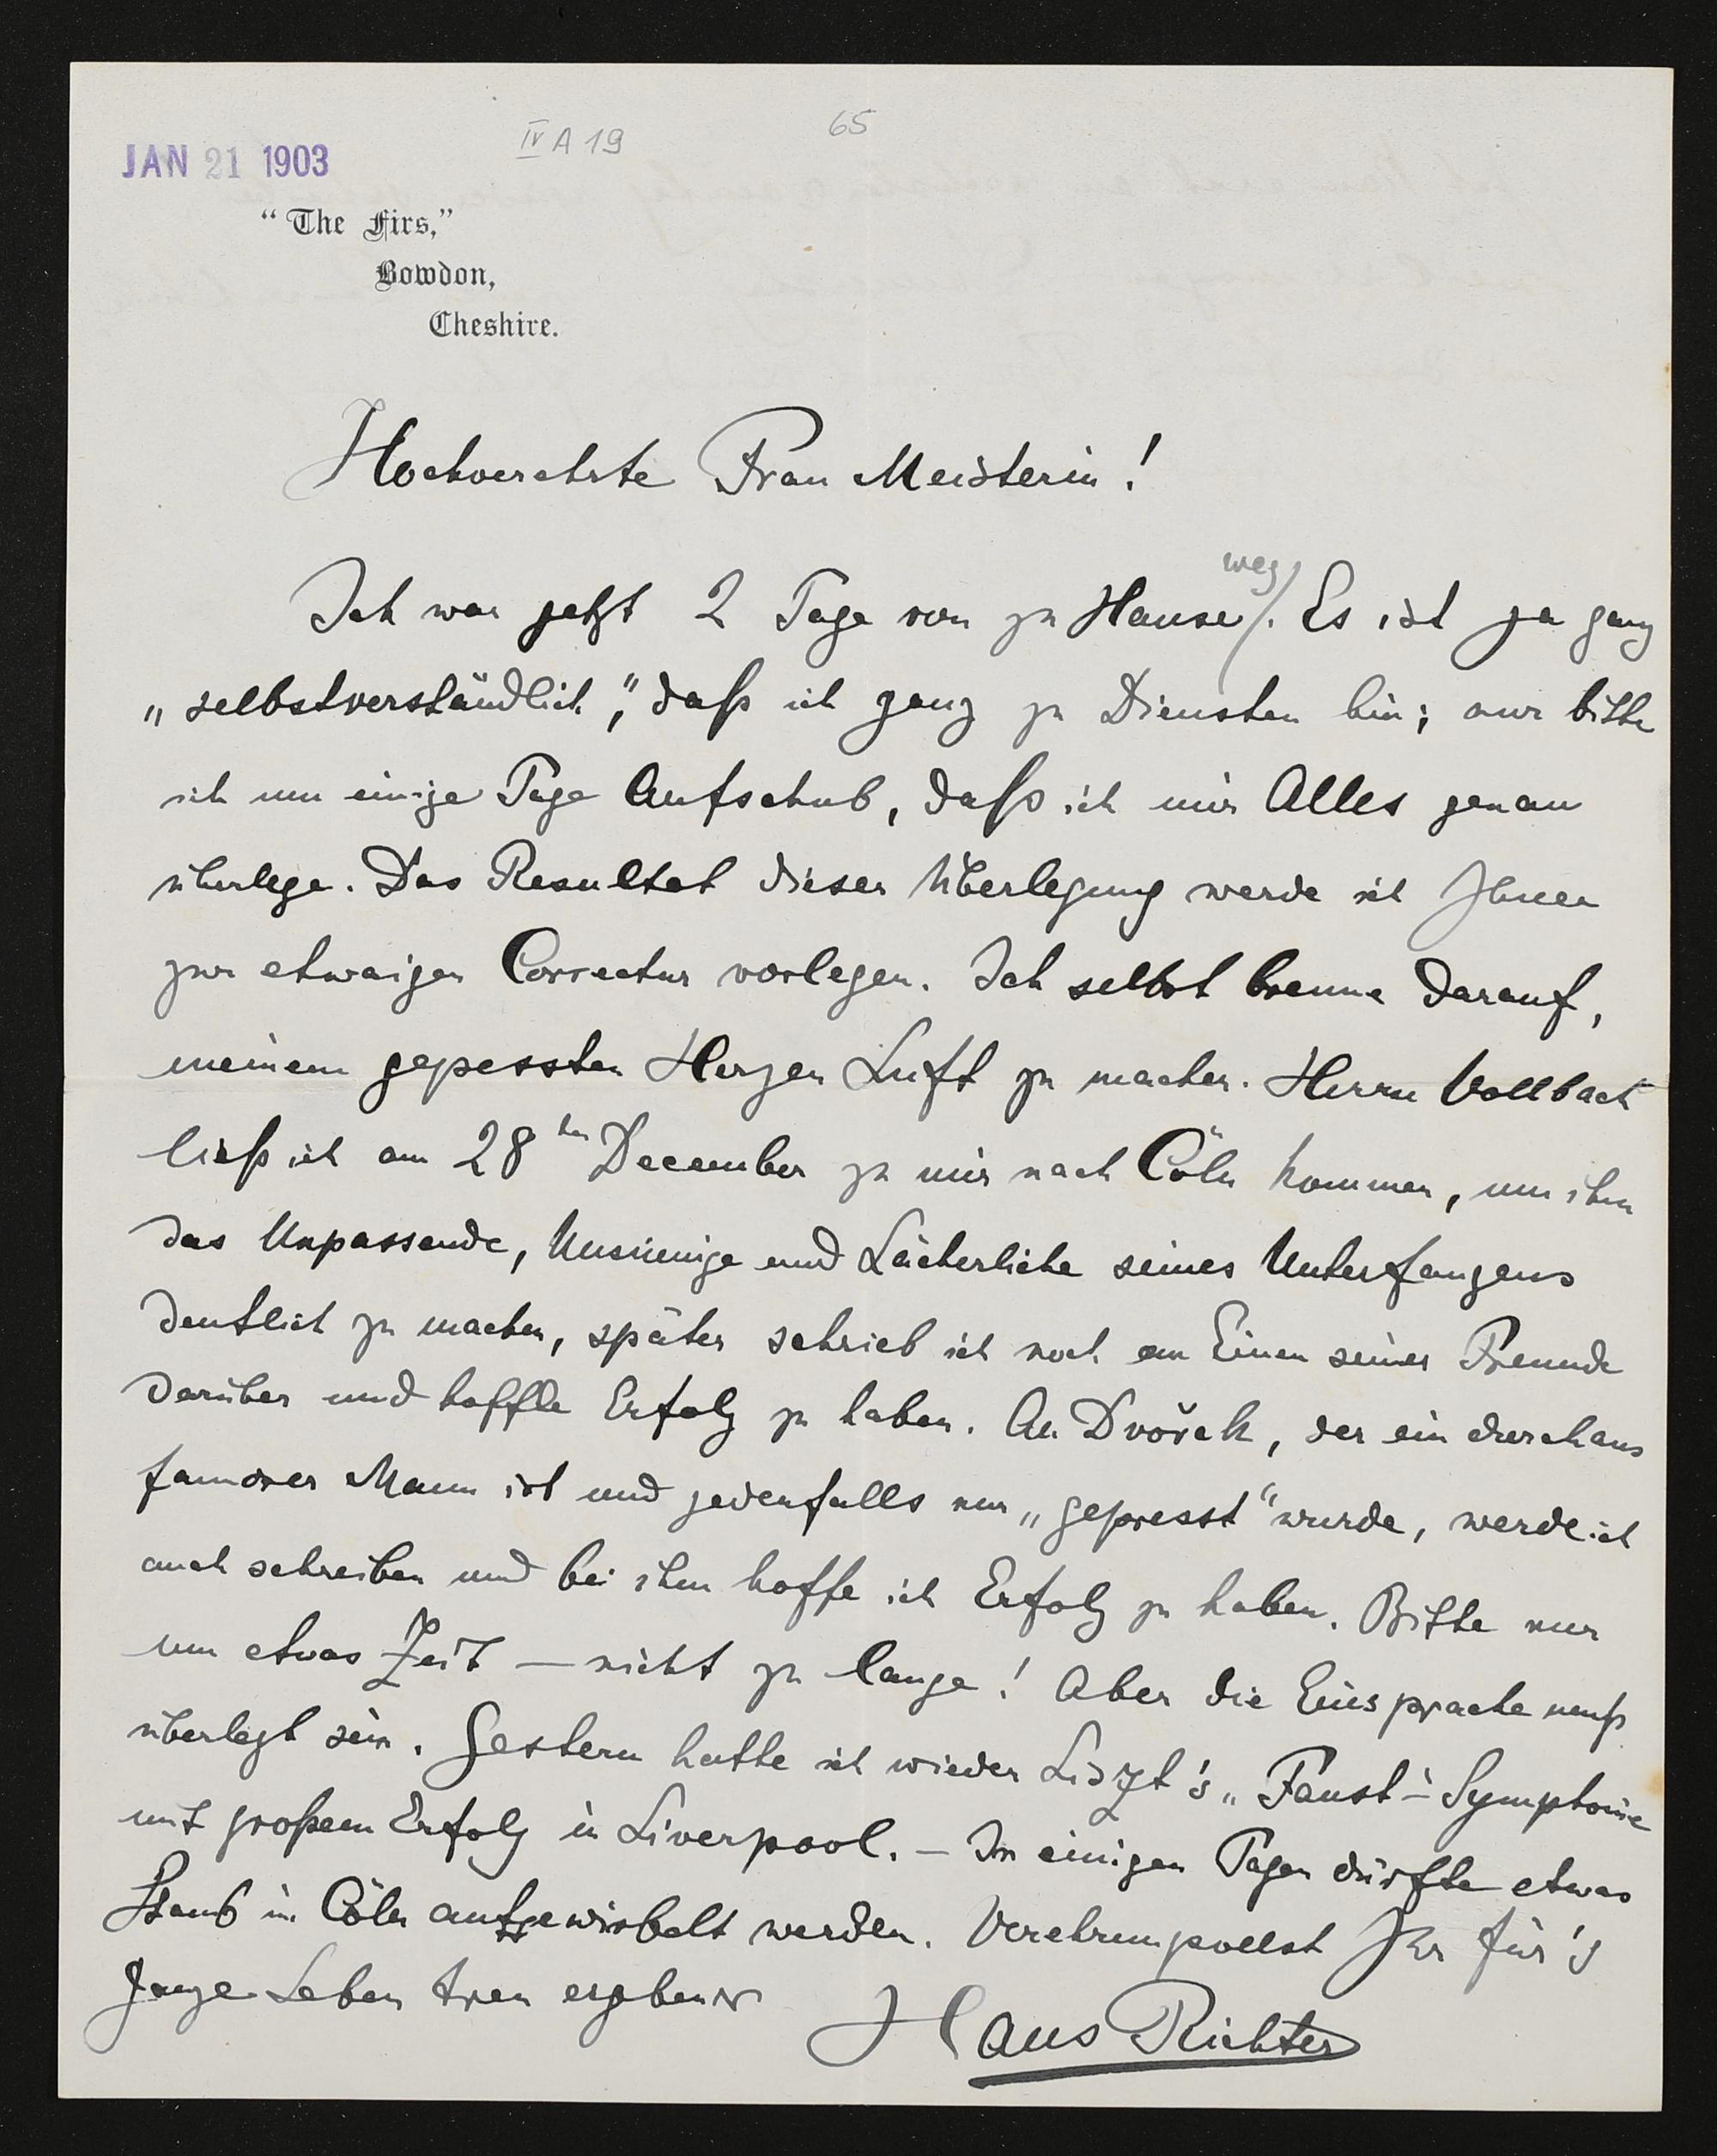 IV A 19
65
JAN 21 1903
"The Firs,"
Bowdon,
Cheshire.
Hochverehrte Frau Meisterin!
weg
Ich war jetzt 2 Tage von zu Hause. Es ist ja ganz
„selbstverständlich“, daß ich ganz zu Diensten bin; nur bitte
ich um einige Tage Aufschub, daß ich mir Alles genau
überlege. Das Resultat dieser Überlegung werde ich Ihnen
zur etwaigen Correctur vorlegen. Ich selbst brenne darauf,
meinem gepessten Herzen Luft zu machen. Herrn Vollbach
ließ ich am 28ten December zu mir nach Cöln kommen, um ihm
das Unpassende, Unsinnige und Lächerliche seines Unterfangens
deutlich zu machen, später schrieb ich noch an Einen seiner Freunde
darüber und hoffte Erfolg zu haben. An Dvořak, der ein durchaus
famoser Mann ist und jedenfalls nur „gepresst“ wurde, werde ich
auch schreiben und bei ihm hoffe ich Erfolg zu haben. Bitte nur
um etwas Zeit — nicht zu lange! Aber die Einsprache muß
überlegt sein. Gestern hatte ich wieder Liszt's „Faust“-Symphonie
mit großem Erfolg in Liverpool. — In einigen Tagen dürfte etwas
Staub in Cöln aufgewirbelt werden. Verehrungsvollst Ihr für's
ganze Leben treu ergebener
Hans Richter